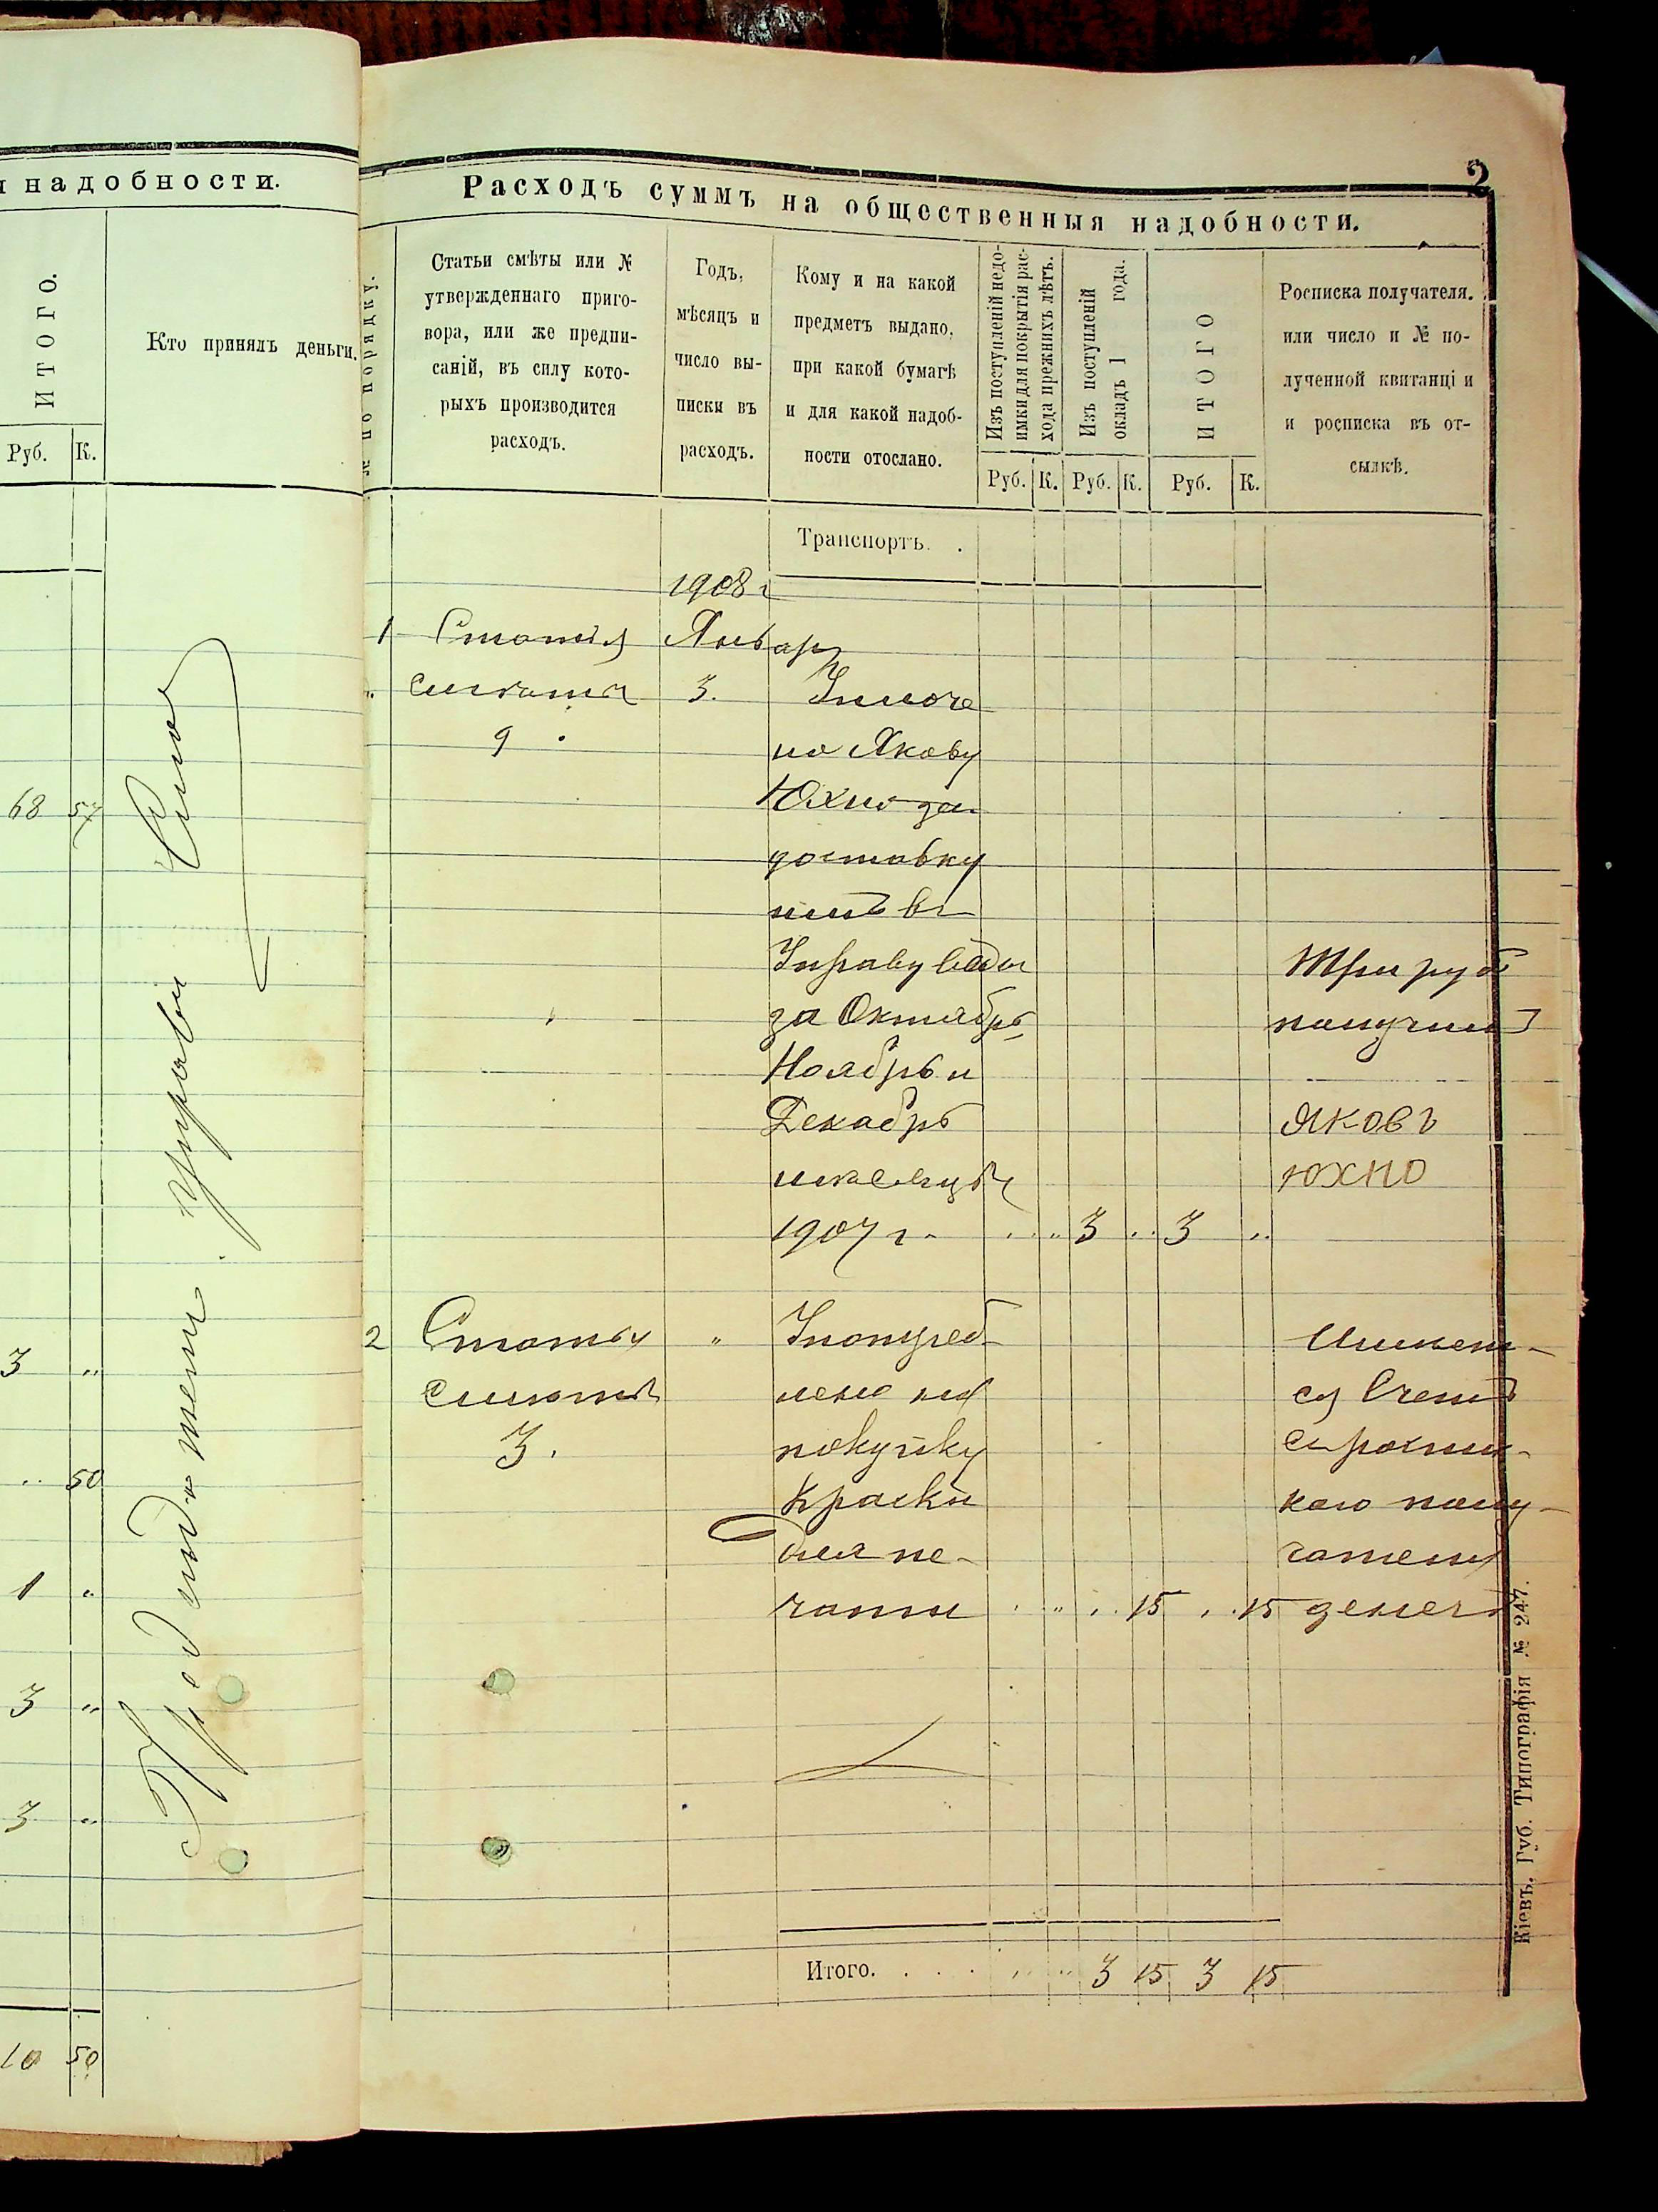 надобности.
ИТОГО.
Кто принялъ деньги.
Руб. К.
68 57
3 "
.. 50
1 "
3 "
3 "
10 50
2
Расходъ суммъ на общественныя надобности.
№ по порядку.
Статьи смѣты или №
утвержденнаго приго-
вора, или же предпи-
саній, въ силу кото-
рыхъ производится
расходъ.
Годъ,
мѣсяцъ и
число вы-
писки въ
расходъ.
Кому и на какой
предметъ выдано,
при какой бумагѣ
и для какой надоб-
ности отослано.
Изъ поступленій недо-
имки для покрытія рас-
хода прежнихъ лѣтъ.
Изъ поступленій
окладъ 1 года.
ИТОГО
Росписка получателя.
или число и № по-
лученной квитанці и
и росписка въ от-
сылкѣ.
Руб. К. Руб. К. Руб. К.
Транспортъ. .
1908 г
1 Статія Январ
смѣты 3. Уплоче
9 но Якову
Юхно за
доставку
въ
Управу воды
за Октябрь,
Ноябрь и
Декабрь
мѣсяцы
1907 г. .. .. 3 .. 3 ..
Три руб
получилъ
Яковъ
Юхно
2 Статья " Употреб-
смѣты лено на
3. покупку
краски
для пе-
чати . " .. 15 . . 15
Имѣет-
ся Счетъ
каго полу-
чателя
денегъ
Итого. . . . 3 15 3 15
Кіевъ. Губ. Типографія № 247.